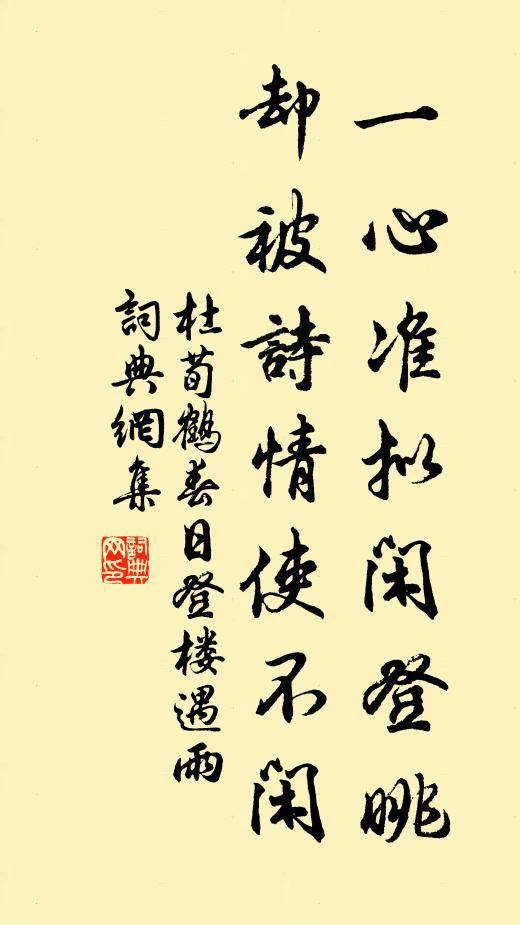 一心准拟闲登眺
却被詩情使不闲
杜荀鶴春日登楼遇雨
詞典網集
詞典网印